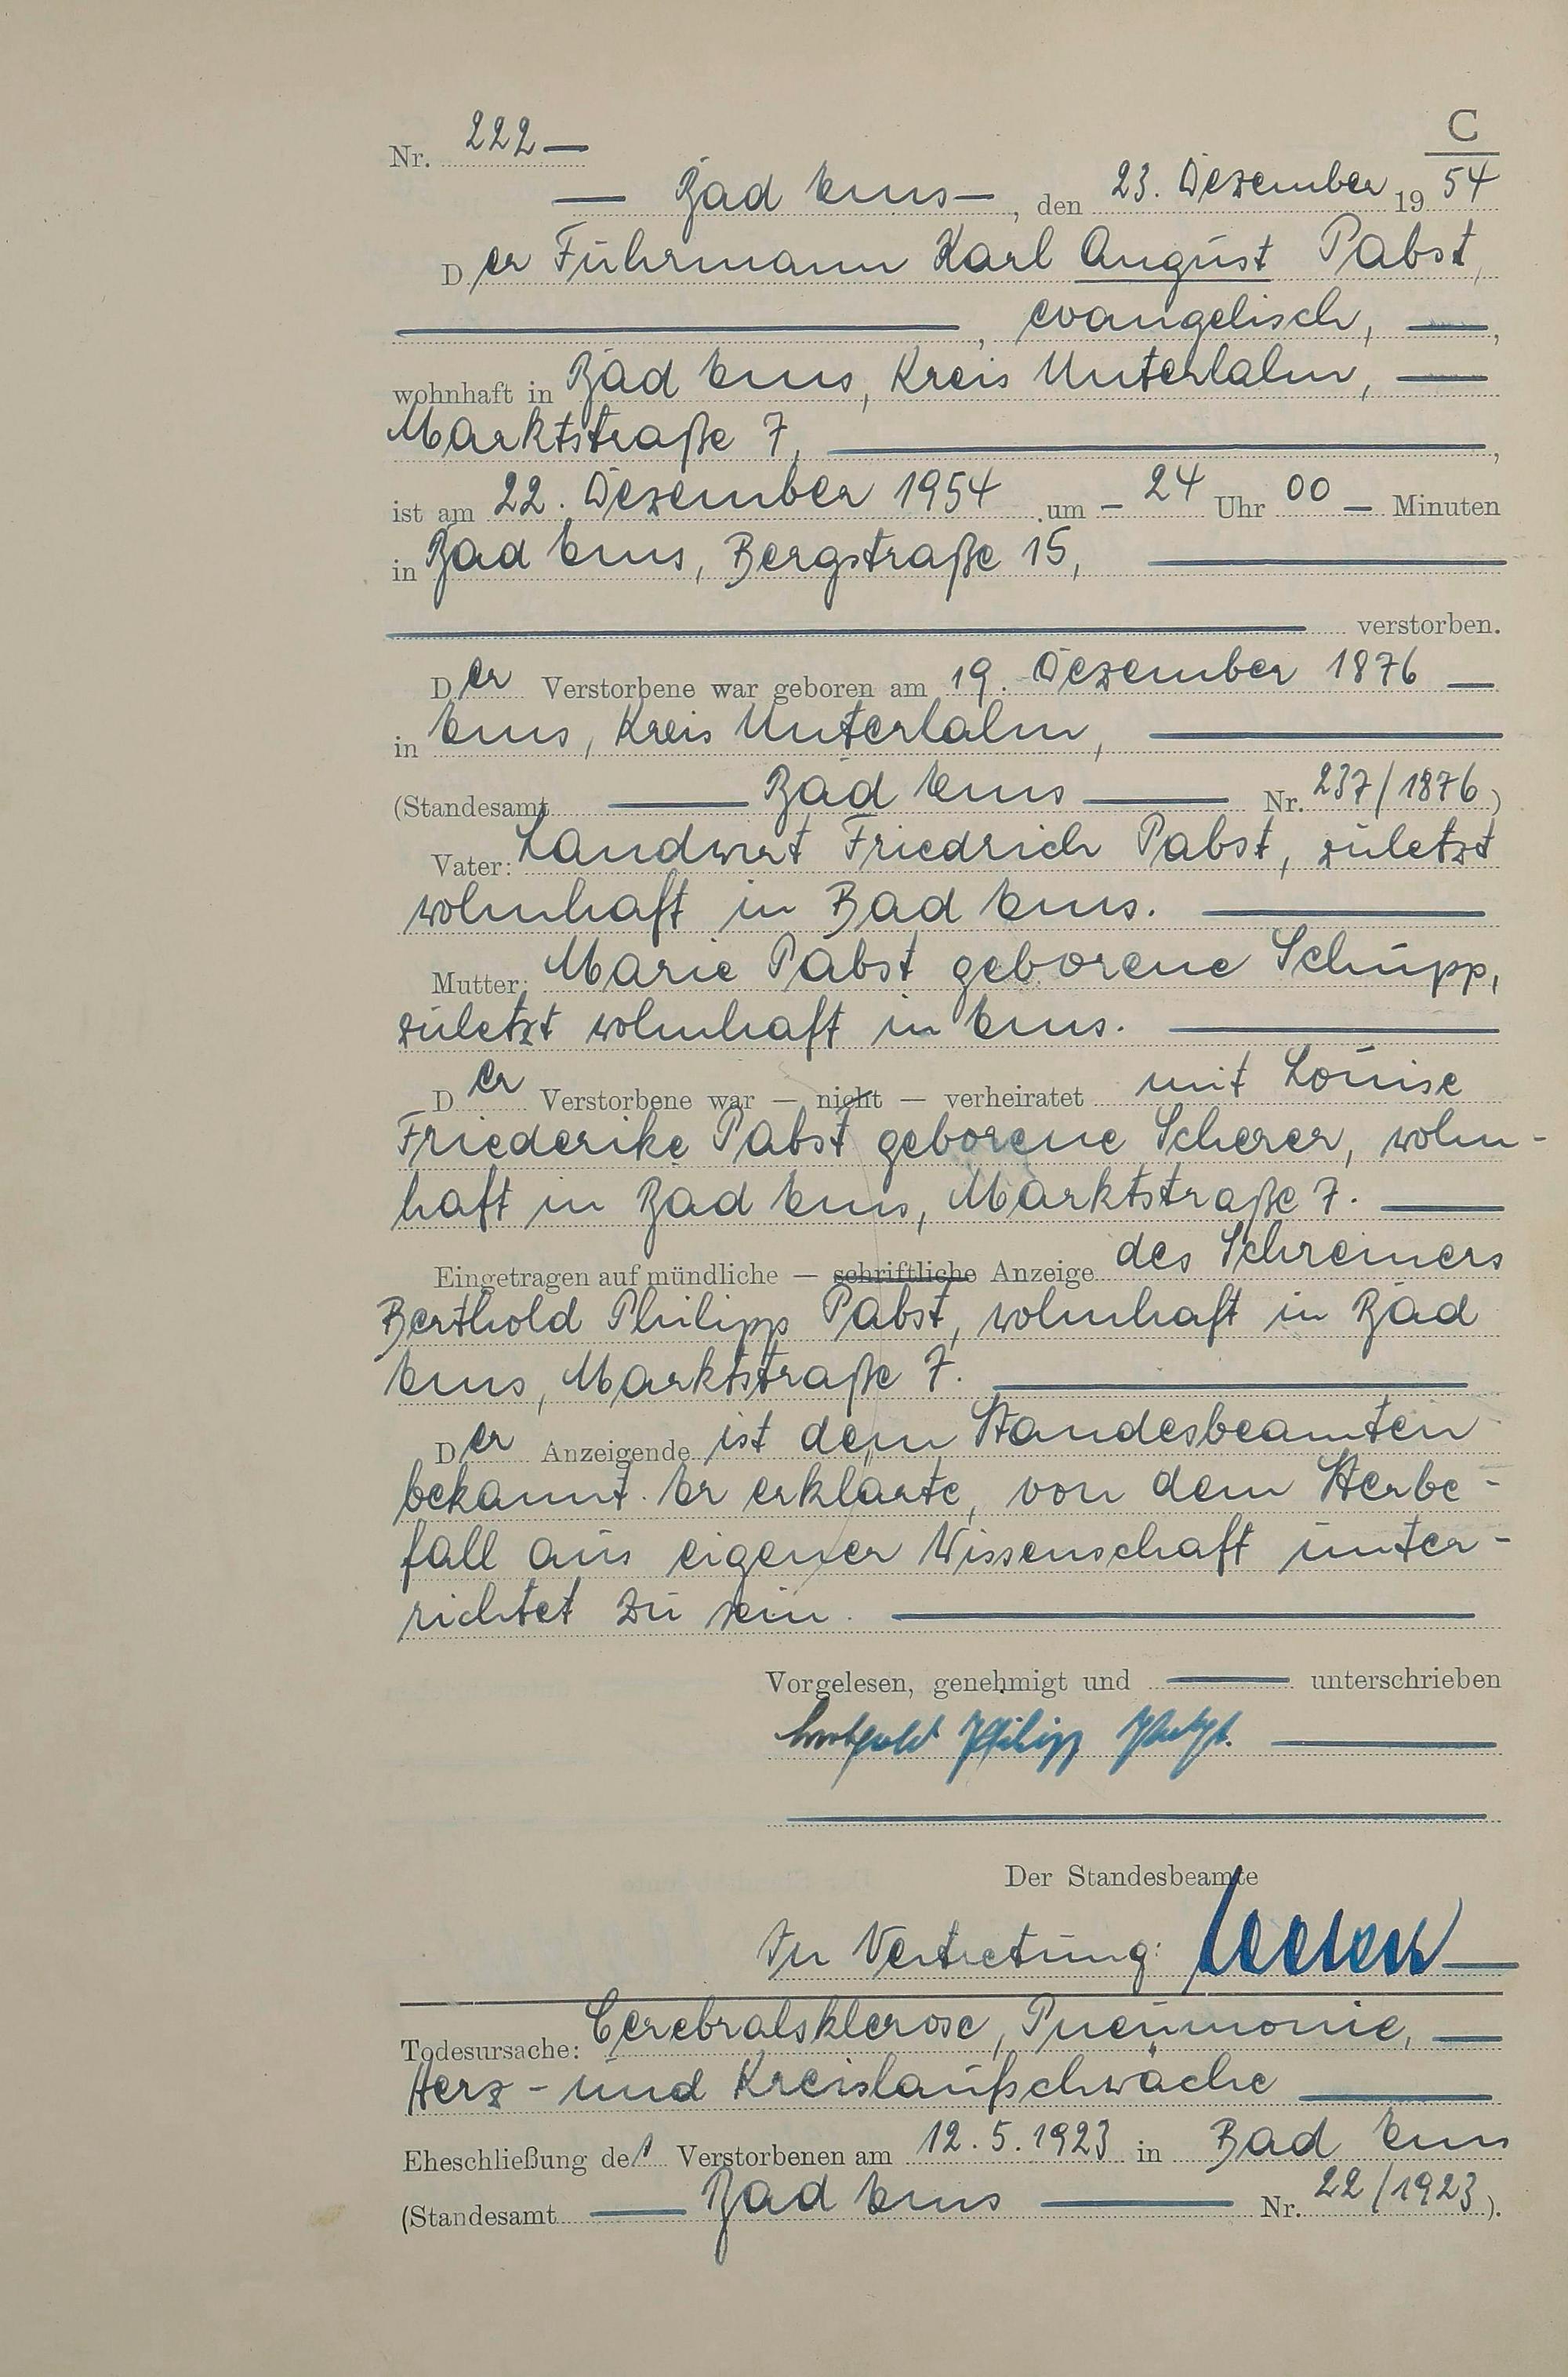 C
Nr. 222 —
— Bad Ems —, den 23. Dezember 1954
Der Fuhrmann Karl August Pabst,
—, evangelisch, —,
wohnhaft in Bad Ems, Kreis Unterlahn, —
Marktstraße 7, —,
ist am 22. Dezember 1954 um — 24 Uhr 00 — Minuten
in Bad Ems, Bergstraße 15, —
— verstorben.
Der Verstorbene war geboren am 19. Dezember 1876 —
in Ems, Kreis Unterlahn, —
(Standesamt — Bad Ems — Nr. 237/1876)
Vater: Landwirt Friedrich Pabst, zuletzt
wohnhaft in Bad Ems. —
Mutter: Marie Pabst geborene Schupp,
zuletzt wohnhaft in Ems. —
Der Verstorbene war — nicht — verheiratet mit Louise
Friederike Pabst geborene Scherer, wohn-
haft in Bad Ems, Marktstraße 7. —
Eingetragen auf mündliche — schriftliche Anzeige des Schreiners
Berthold Philipp Pabst, wohnhaft in Bad
Ems, Marktstraße 7. —
Der Anzeigende ist dem Standesbeamten
bekannt. Er erklärte, von dem Sterbe-
fall aus eigener Wissenschaft unter-
richtet zu sein. —
Vorgelesen, genehmigt und — unterschrieben
Berthold Philipp Pabst. —
Der Standesbeamte
In Vertretung:
Todesursache: Cerebralsklerose, Pneumonie, —
Herz- und Kreislaufschwäche —
Eheschließung des Verstorbenen am 12.5.1923 in Bad Ems
(Standesamt — Bad Ems — Nr. 22/1923).